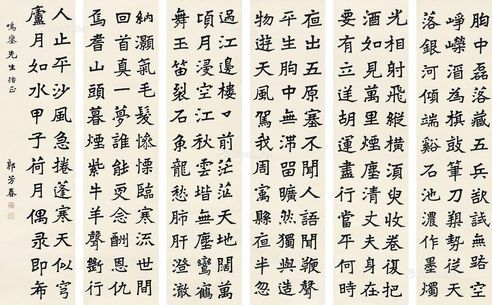 胸中磊落藏五兵欲試無路空
崢嶸酒為旗鼓筆刀槊勢從天
落銀河傾端谿石池濃作墨燭
光相射飛縱橫須臾收卷復把
酒如見萬里煙塵清丈夫身在
要有立逆胡運盡行當平何時
夜出五原塞不聞人語聞鞭聲
平生胸中無滯留曠然獨與造
物遊天風駕我周寰縣夜半忽
過江邊樓樓前茫茫天地闊萬
頃月浸空江秋雲堦無塵鸞
舞玉笛裂石魚龍愁肺肝澄澈
納灝氣毛髮慘慄臨寒流世間
回首真一夢誰能更念酬恩仇
焉耆山頭暮煙紫牛羊聲斷行
人止平沙風急捲蓬寒天似穹
廬月如水甲子荷月偶录即希
鳴鑾先生指正 郭芳春